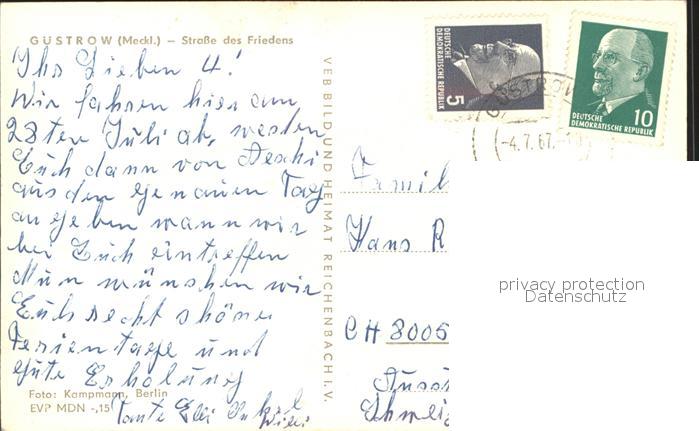 GÜSTROW (Meckl.) – Straße des Friedens
Ihr Lieben 4!
Wir fahren hier am
28ten Juli ab, werden
Euch dann von Aeschi
aus den genauen Tag
angeben wann wir
bei Euch eintreffen
Nun wünschen wir
Euch recht schöne
Ferientage und
gute Erholung
Tante Elli Onkel
Willi
Foto: Kampmann, Berlin
EVP MDN -,15
VEB BILD UND HEIMAT REICHENBACH I. V.
DEUTSCHE
DEMOKRATISCHE REPUBLIK
5
DEUTSCHE
DEMOKRATISCHE REPUBLIK
10
GÜSTROW
-4.7.67.-
Famil
Hans R
CH 8005
Schweiz
privacy protection
Datenschutz